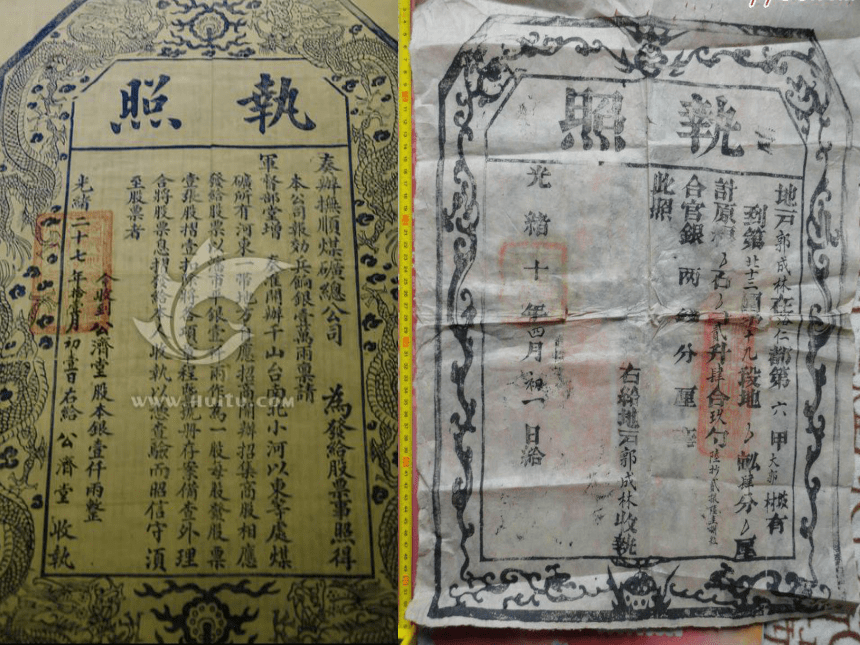 執照
奏辦撫順煤礦總公司 為發給股票事照得
本公司報効兵餉銀壹萬兩稟請
軍督部堂增 奏准開辦千山台南北小河以東等處煤
礦所有河東一帶地方 應招 開辦招集商股相應
發給股票以瀋市平銀壹仟兩作為一股每股發股票
壹張股摺壹 將各項章程 號存案備查外理
合將股票息摺發給 人收執以憑查驗而照信守須
至股票者
今收到公濟堂股本銀壹仟兩整
光緒二十七年 月初壹日右給 公濟堂 收執
www.huitu.com
執照
地户郭成林在 仁都第六甲 村有
到第廿十三 九段地 畝肆分 厘
計原 石 貳升肆合玖勺
合官銀 兩 錢 分 厘
此照
右給地户郭成林收執
光緒十 年四月初一日給